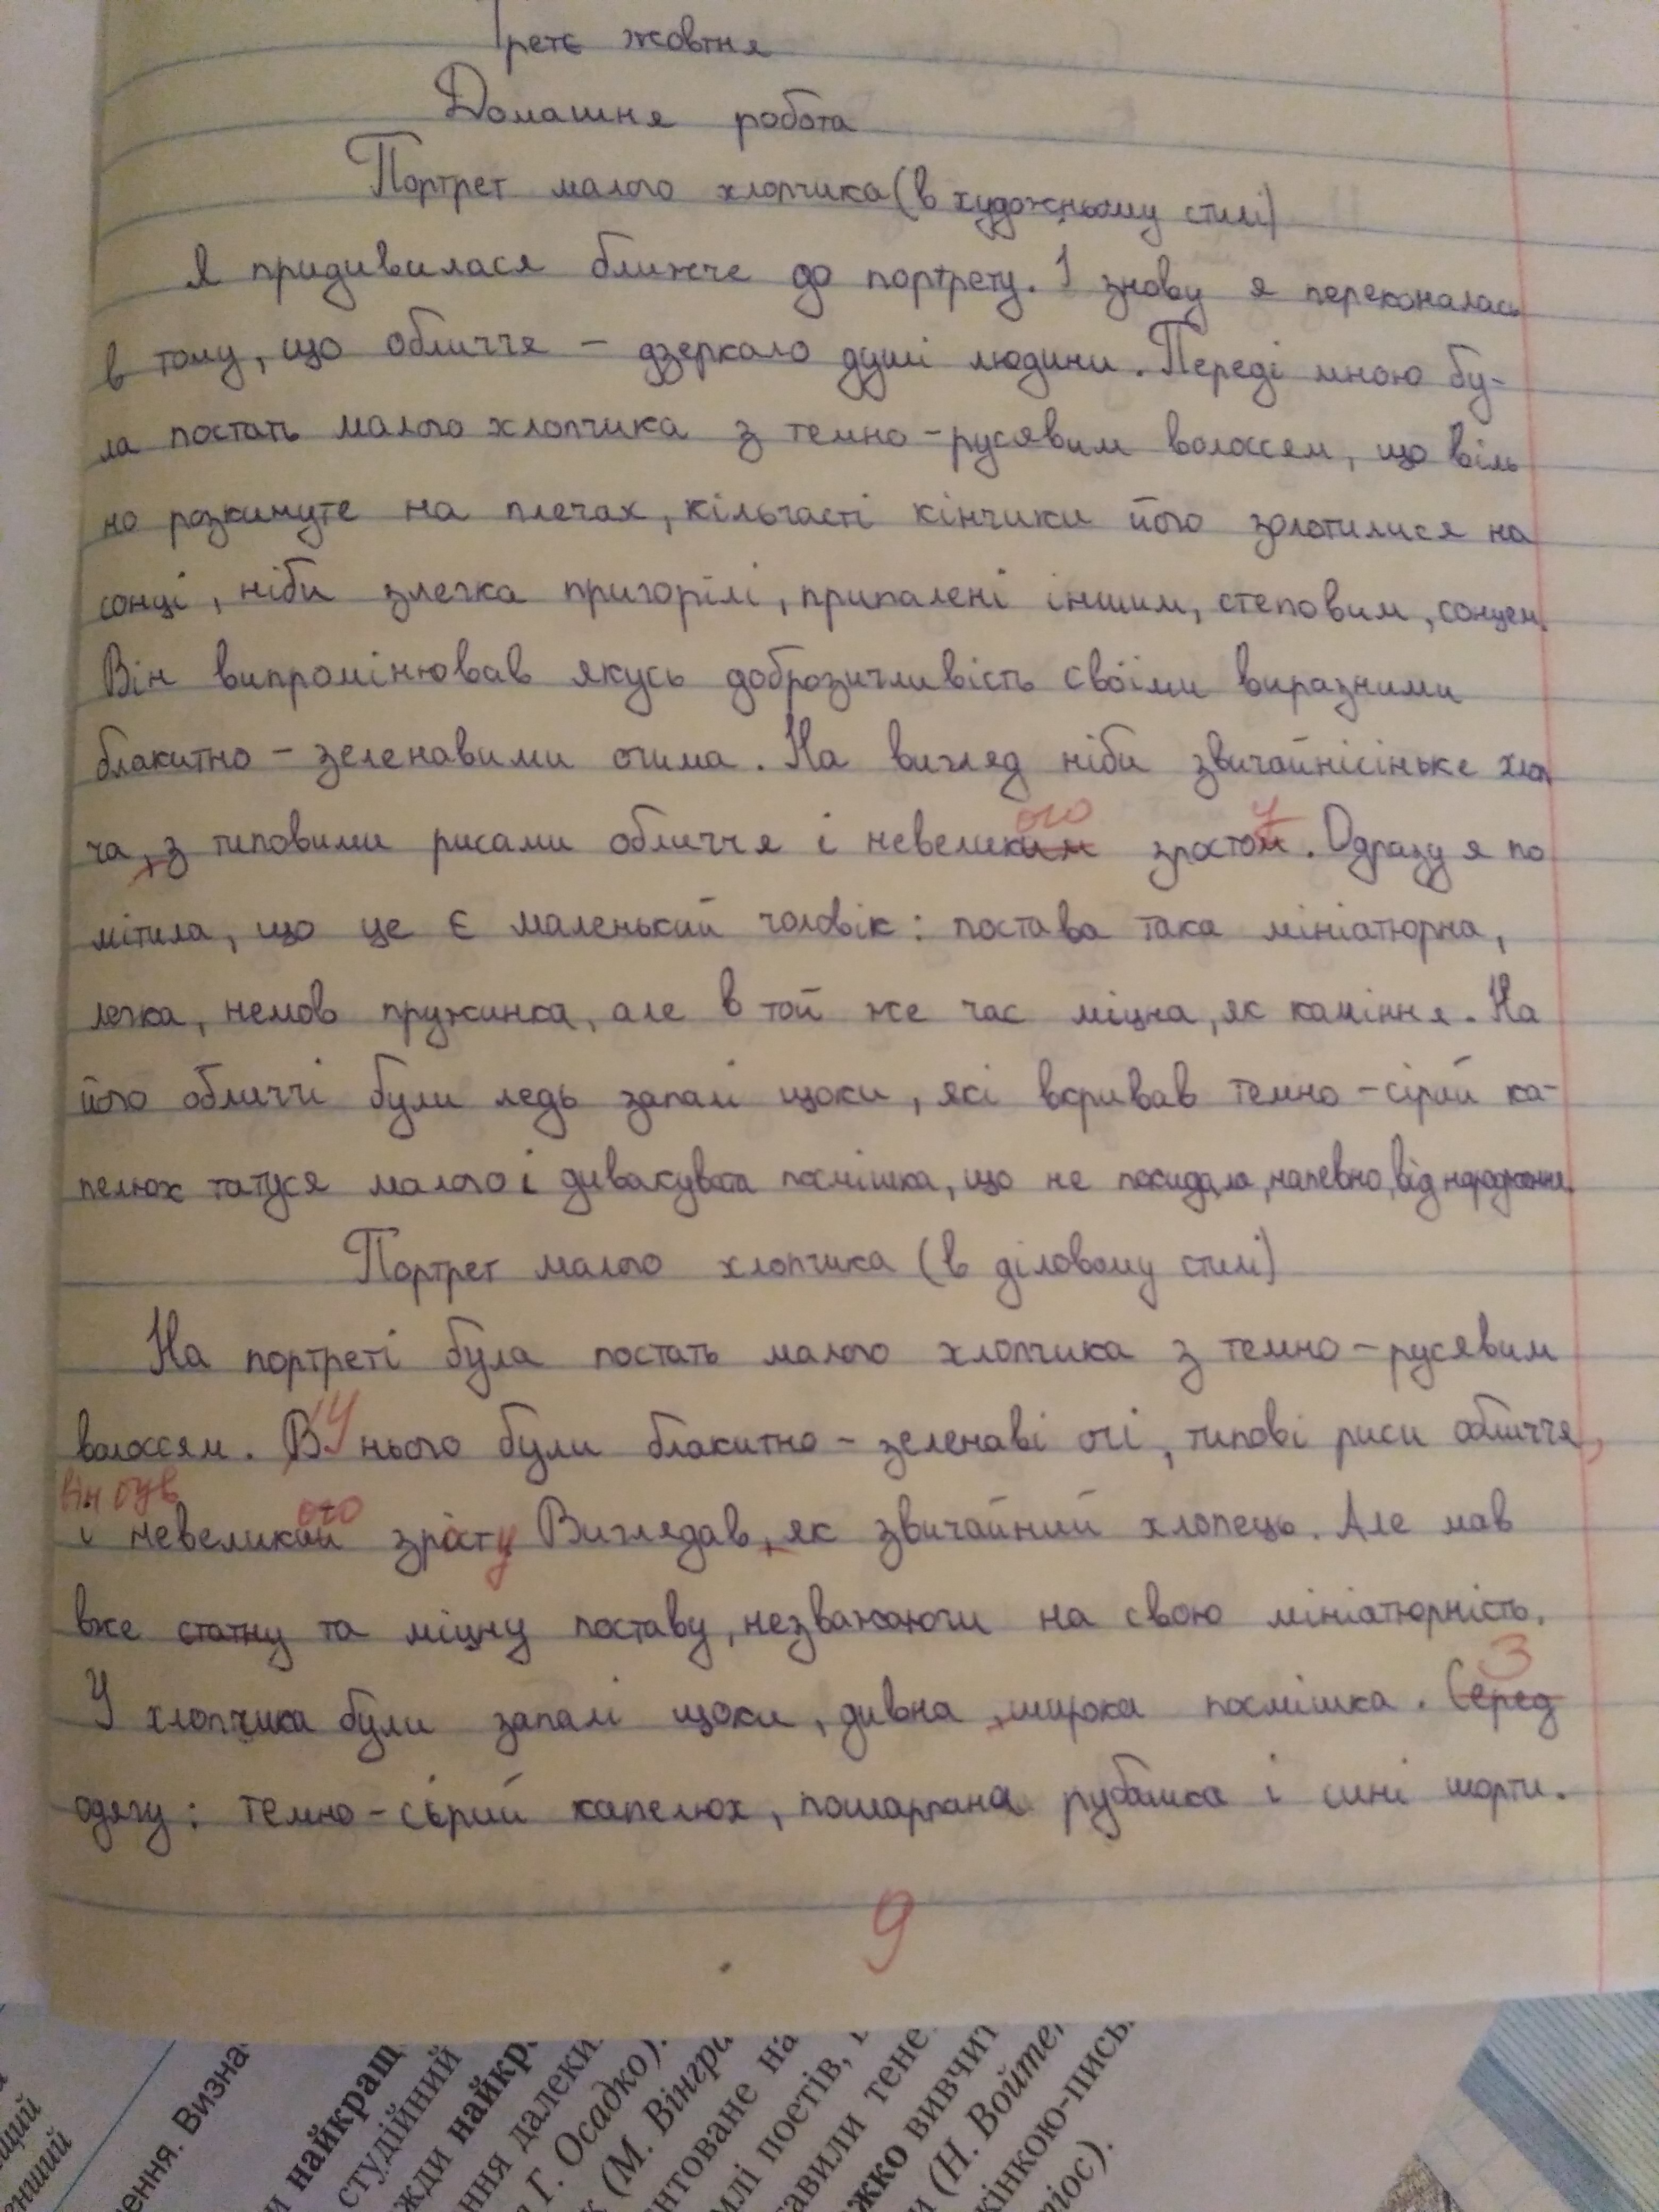 Третє жовтня
Домашня робота
Портрет малого хлопчика (в художньому стилі)
Я придивилася ближче до портрету. І знову я переконалась
в тому, що обличчя – дзеркало душі людини. Переді мною бу-
ла постать малого хлопчика з темно-русявим волоссям, що віль
но розкинуте на плечах, кільчасті кінчики його золотилися на
сонці, ніби злегка пригорілі, припалені іншим, степовим, сонцем.
Він випромінював якусь доброзичливість своїми виразними
блакитно-зеленавими очима. На вигляд ніби звичайнісіньке хлоп
ого у
ча, з типовими рисами обличчя і невеликим зростом. Одразу я по
мітила, що це є маленький чоловік: постава така мініатюрна,
легка, немов пружинка, але в той же час міцна, як каміння. На
його обличчі були ледь запалі щоки, які вкривав темно-сірий ка-
пелюх татуся малого і дивакувата посмішка, що не покидала, напевно, від народження.
Портрет малого хлопчика (в діловому стилі)
На портреті була постать малого хлопчика з темно-русявим
У
волоссям. В нього були блакитно-зеленаві очі, типові риси обличчя,
Він був ого
і невеликий зросту Виглядав, як звичайний хлопець. Але мав
вже статну та міцну поставу, незважаючи на свою мініатюрність.
З
У хлопчика були запалі щоки, дивна, широка посмішка. Серед
одягу: темно-сірий капелюх, пошарпана рубашка і сині шорти.
9
ення. Визна-
найкращ
студійний
жди найкр
ння далеки
Г. Осадко).
(М. Вінгра
нтоване на
млі поетів,
тавили тене
жко вивчит
(Н. Войте
жінкою-пись